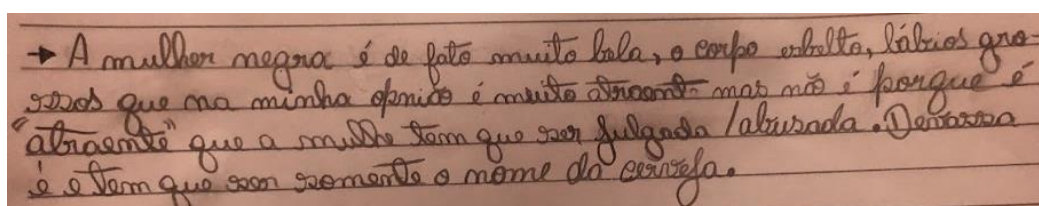 → A mulher negra é de fato muito bela, o corpo esbelto, lábios gro-
ssos que na minha opnião é muito atraent mas não é porque é
"atraente" que a mulhe tem que ser julgada / abusada. Devassa
é e tem que ser somente o nome da cerveja.